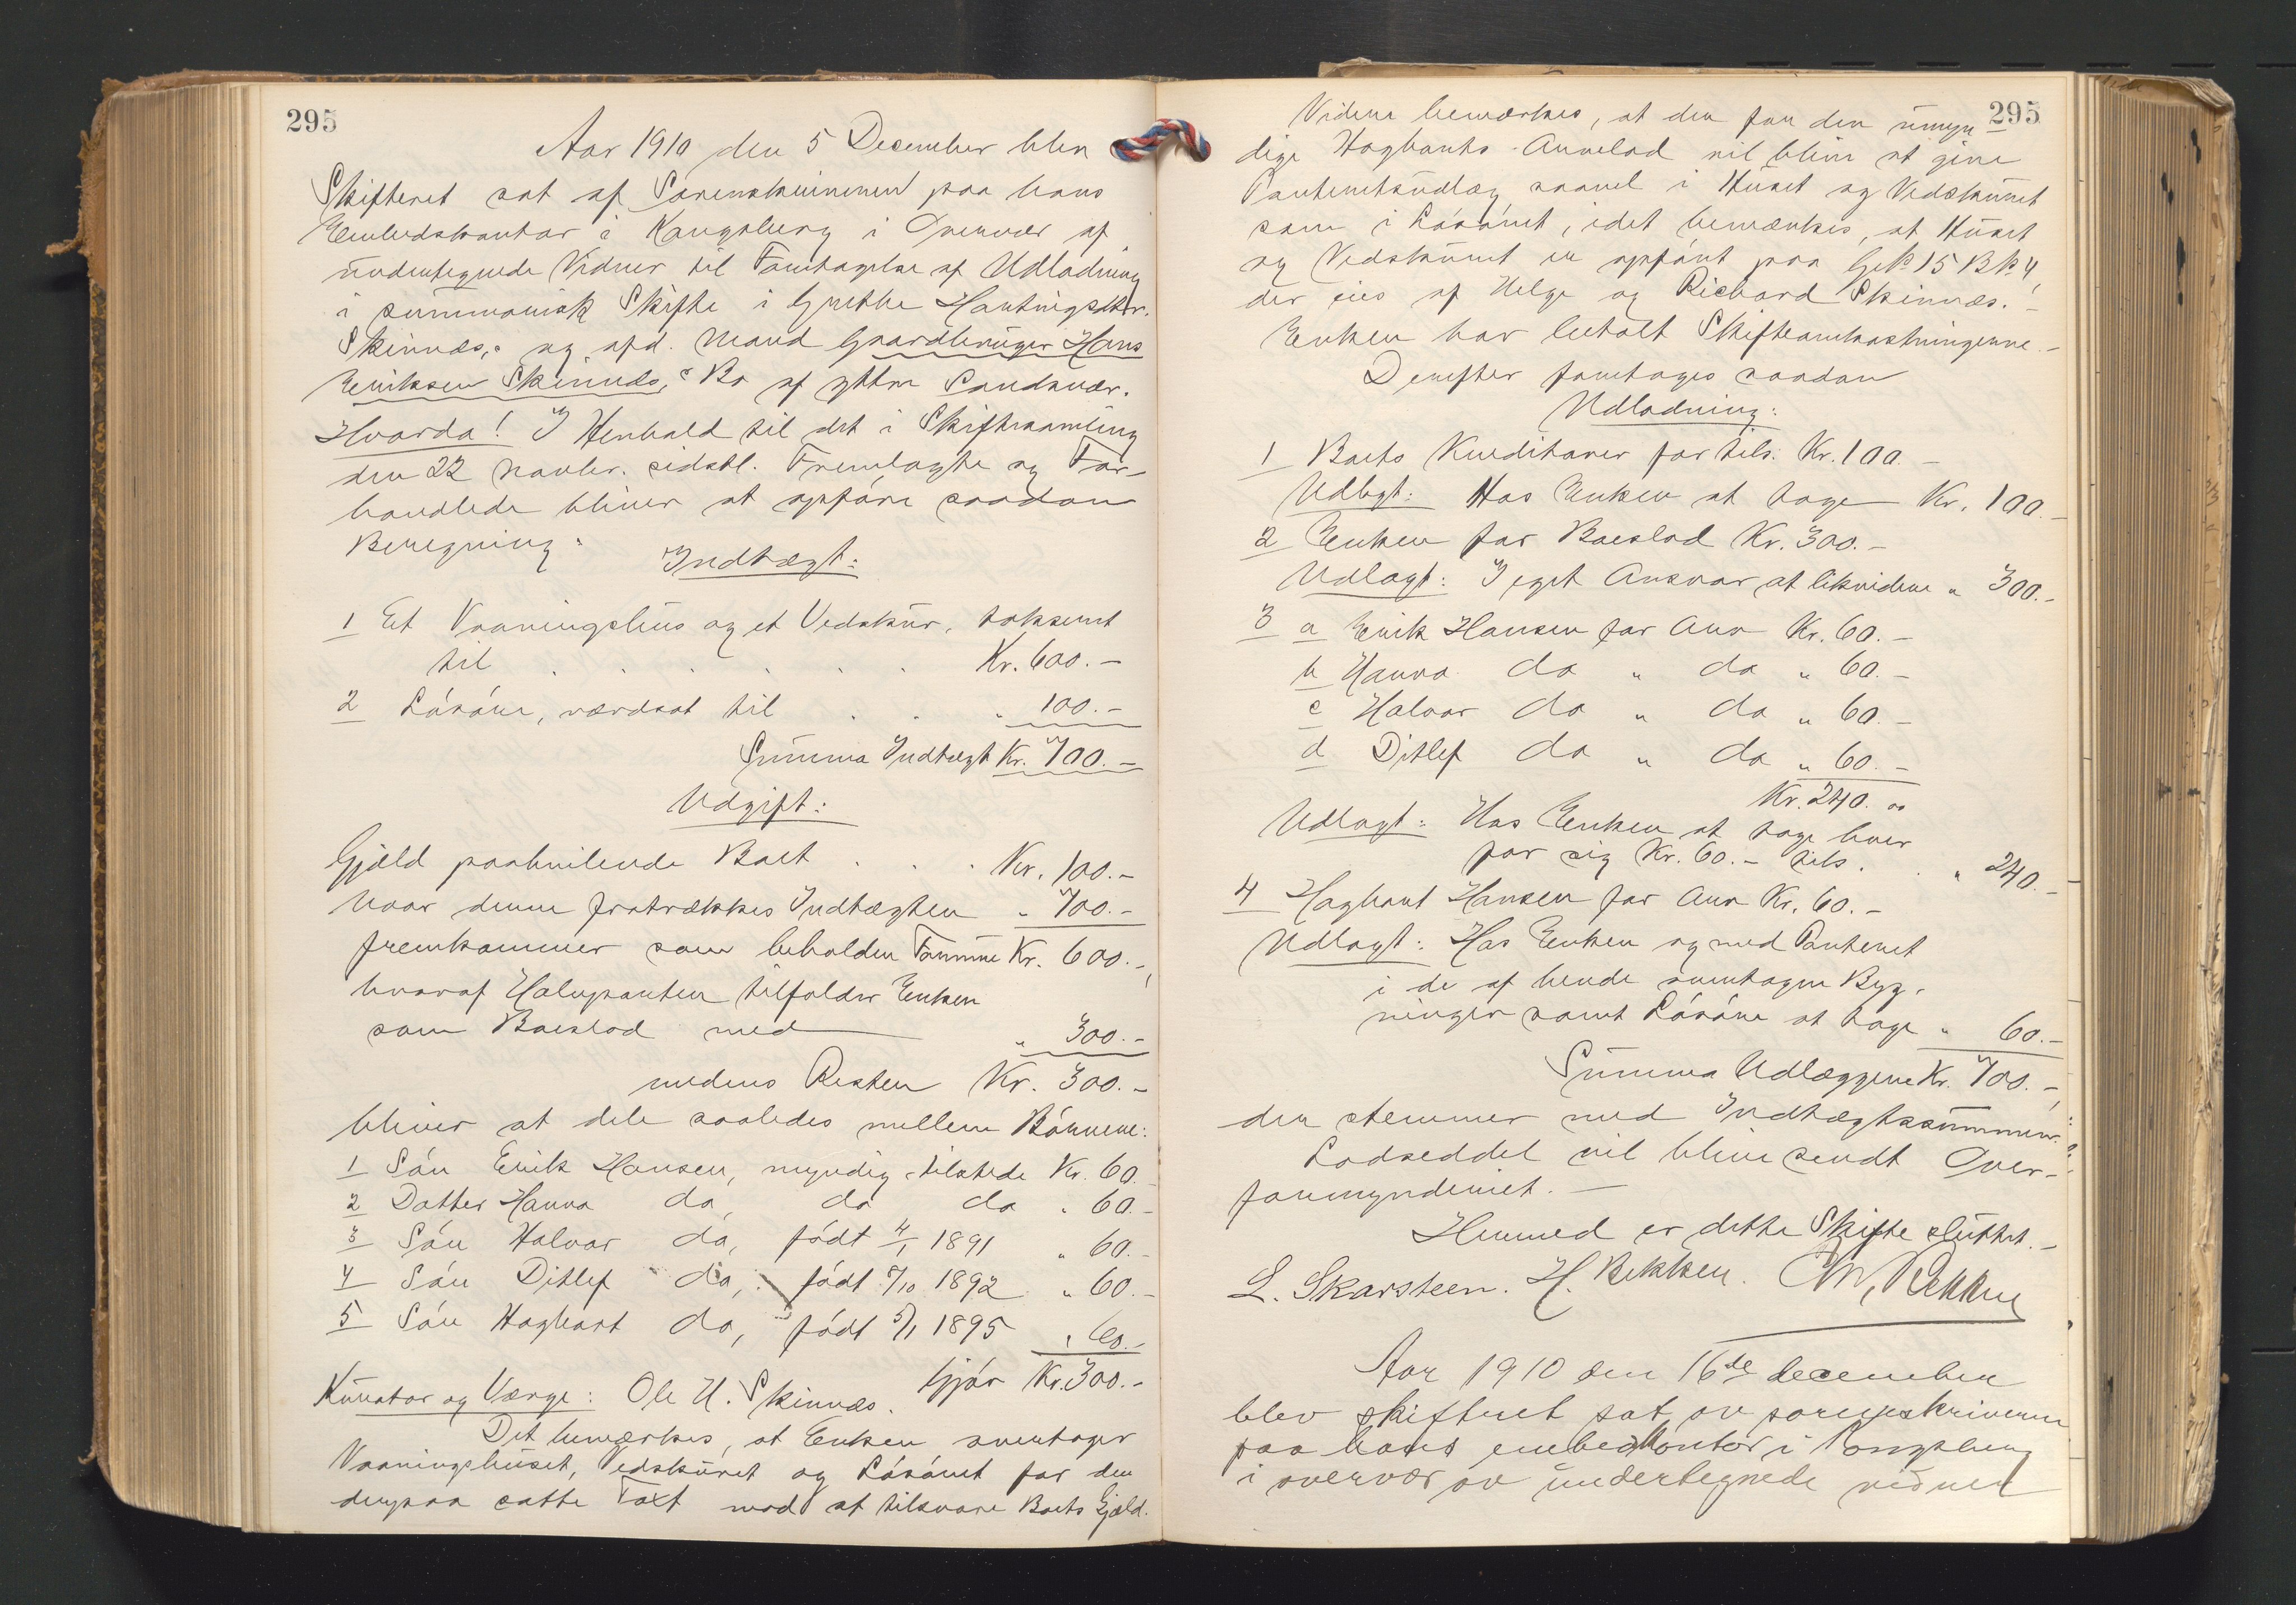 295
Aar 1910 den 5 December blev
Skifteret sat af Sorenskriveren paa hans
Embedskontor i Kongsberg i Overvær af
undertegnede Vidner til Foretagelse af Udlodning
i summarisk Skifte i Grethe Hartvigsdtr.
Skinnæs, og afd. Mand Gaardbruger Hans
Eriksen Skinnæs, Bo af yttre Sandsvær.
Hvorda! I Henhold til det i Skiftesamling
den 22 Novbr. sidstl. Fremlagte og For-
handlede bliver at opføre saadan
Beregning:
Indtægt:
1 Et Vaaningshus og et Vedskur, takseret
til . . . . . . Kr. 600.-
2 Løsøre, værdsat til . . " 100.-
Summa Indtægt Kr. 700.-
Udgift:
Gjæld paahvilende Boet . . . Kr. 100.-
Naar denne fratrækkes Indtægten " 700.-
fremkommer som beholden Formue Kr. 600.-,
hvoraf Halvparten tilfalder Enken
som Boeslod med " 300.-
medens Resten Kr. 300.-
bliver at dele saaledes mellem Børnene:
1 Søn Erik Hansen, myndig, tilstede Kr. 60.-
2 Datter Hanna do, do do " 60.-
3 Søn Halvor do, født 4/1 1891 " 60.-
4 Søn Ditlef do, født 7/10 1892 " 60.-
5 Søn Hagbart do, født 5/1 1895 " 60.-
Gjør Kr. 300.-
Kurator og Værge: Ole H. Skinnæs.
Det bemærkes, at Enken overtager
Vaaningshuset, Vedskuret og Løsøret for den
derpaa satte Taxt mod at tilsvare Boets Gjæld.
295
Videre bemærkes, at der for den umyn-
dige Hagbarts Arvelod vil blive at give
Panteretsudlæg saavel i Huset og Vedskuret
som i Løsøret, idet bemærkes, at Huset
og Vedskuret er opført paa Gr. 15 Br. 4,
der eies af Helge og Richard Skinnæs.-
Enken har betalt Skifteomkostningerne.-
Derefter foretoges saadan
Udlodning:
1 Boets Kreditorer for tils. Kr. 100.-
Udlagt: Hos Enken at tage Kr. 100.-
2 Enken for Boeslod Kr. 300.-
Udlagt: I eget Ansvar at likvidere " 300.-
3 a Erik Hansen for Arv Kr. 60.-
b Hanna do " do " 60.-
c Halvor do " do " 60.-
d Ditlef do " do " 60.-
Kr. 240.00
Udlagt: Hos Enken at tage hver
for sig Kr. 60.- tils. . " 240.-
4 Hagbart Hansen for Arv Kr. 60.-
Udlagt: Hos Enken og med Panteret
i de af hende overtagne Byg-
ninger samt Løsøre at tage " 60.-
Summa Udlæggene Kr. 700.-,
der stemmer med Indtægtssummen.
Lodseddel vil blive sendt Over-
formynderiet.-
Hermed er dette Skifte sluttet.-
L. Skarsteen. H. Bekken.
Aar 1910 den 16de december
blev skifteret sat av sorenskriveren
paa hans embedskontor i Kongsberg
i overvær av undertegnede vidner